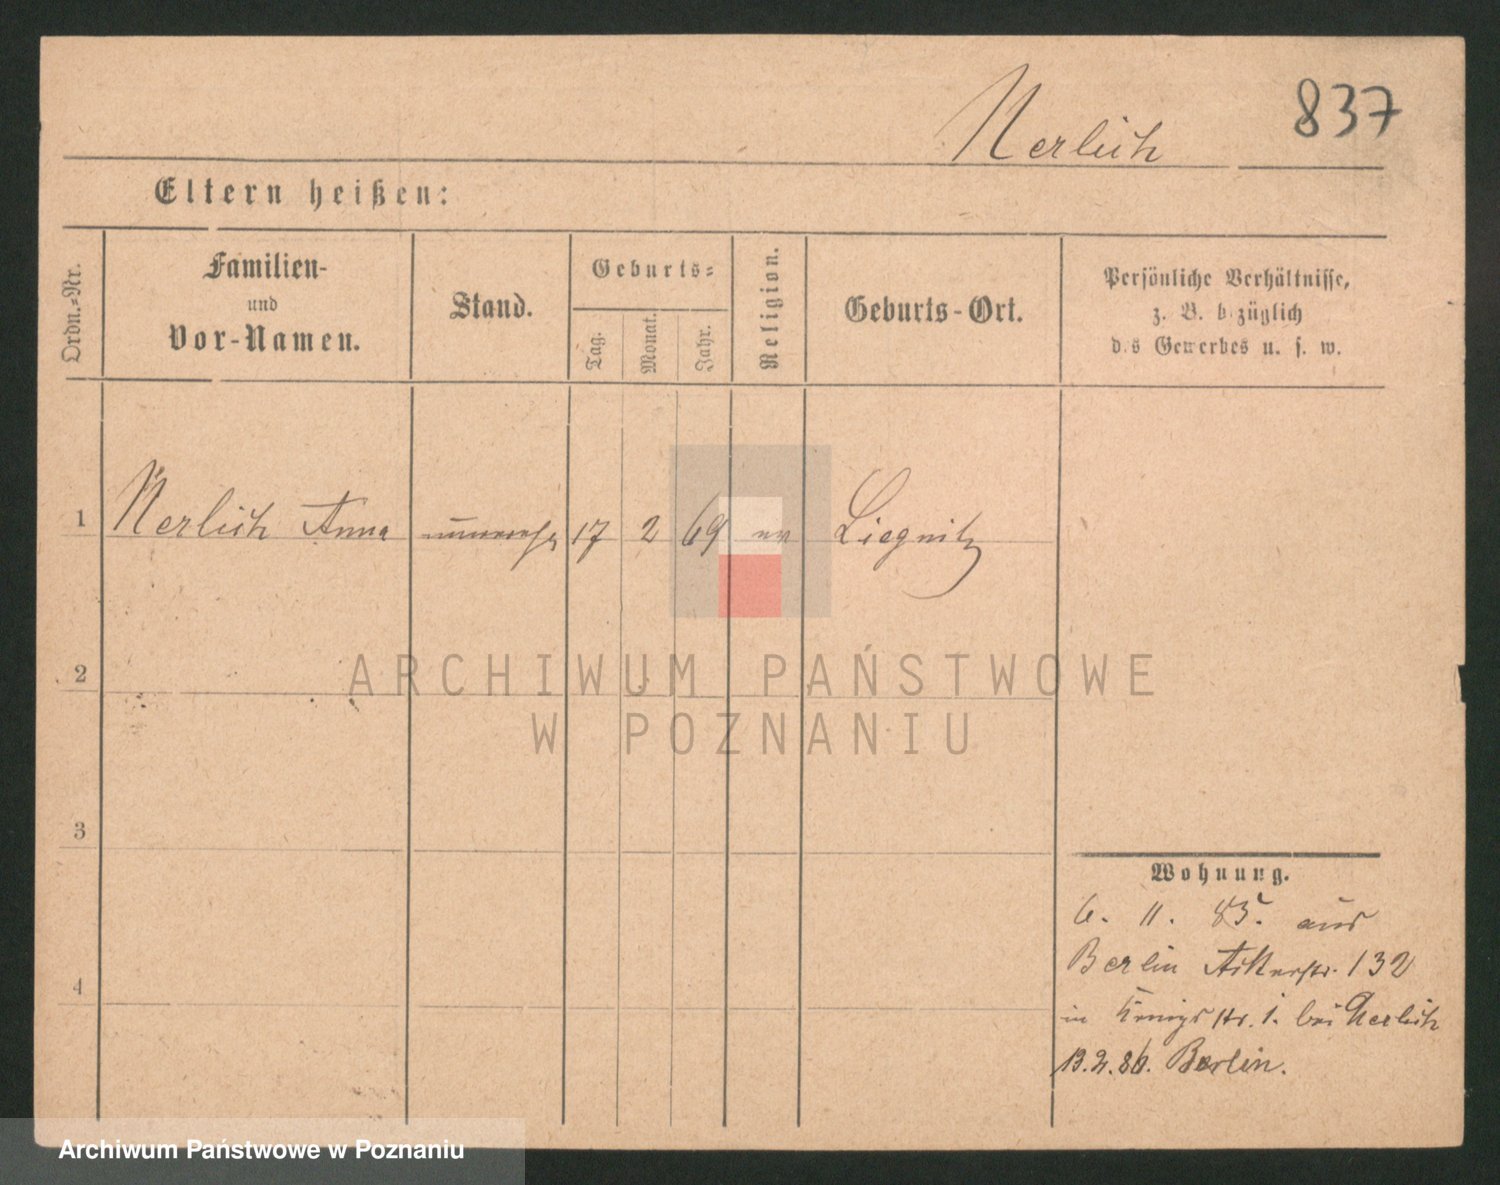 Nerlich 837
Eltern heißen:
Ordn.-Nr.
Familien-
und
Vor-Namen.
Stand.
Geburts-
Tag.
Monat.
Jahr.
Religion.
Geburts-Ort.
Persönliche Verhältnisse,
z. B. bezüglich
des Gewerbes u. s. w.
1 Nerlich Anna unverehl 17 2 69 ev Liegnitz
2
3
4
Wohnung.
6. 11. 85. aus
Berlin Ackerstr. 132
in Königstr. 1. bei Nerlich
13.2.86. Berlin.
ARCHIWUM PAŃSTWOWE
W POZNANIU
Archiwum Państwowe w Poznaniu